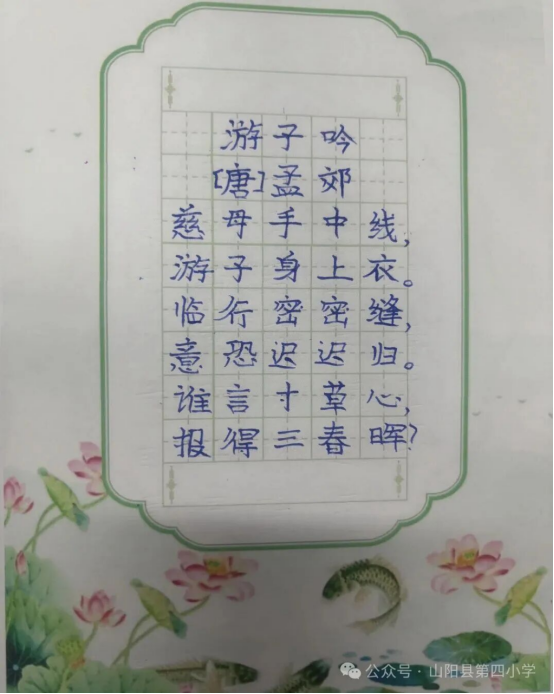 游子吟
[唐]孟郊
慈母手中线，
游子身上衣。
临行密密缝，
意恐迟迟归。
谁言寸草心，
报得三春晖？
公众号·山阳县第四小学